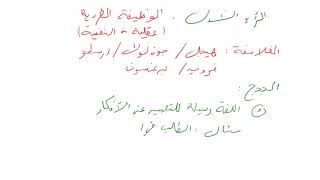 الرأي الأول : الوظيفة الفكرية
(عقلية + النفسية)
الفلاسفة : هيجل / جون لوك / أرسطو
فرويد / برغسون
الحجج :
اللغة وسيلة للتعبير عن الأفكار
مثال : الطالب